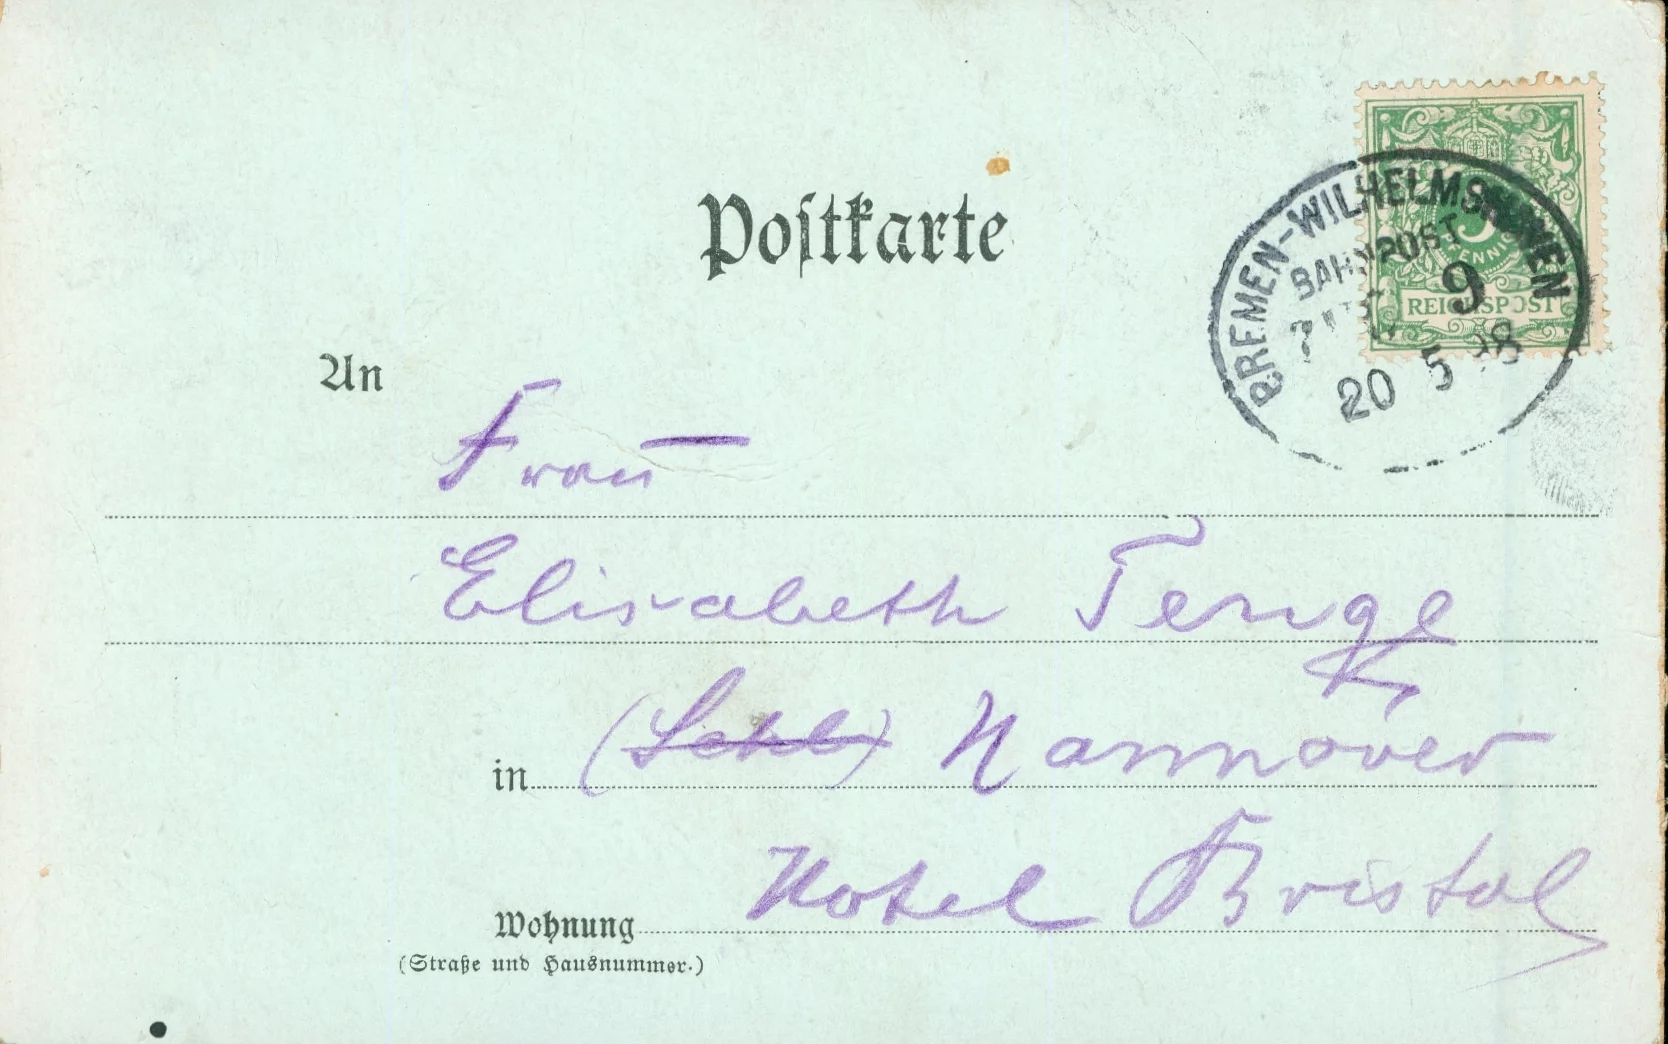 Postkarte
BREMEN-WILHELMSHAVEN
BAHNPOST
9
PFENNIG
REICHSPOST
20 5 98
An
Frau
Elisabeth Tenge
in Hannover
Wohnung Hotel Bristol
(Straße und Hausnummer.)